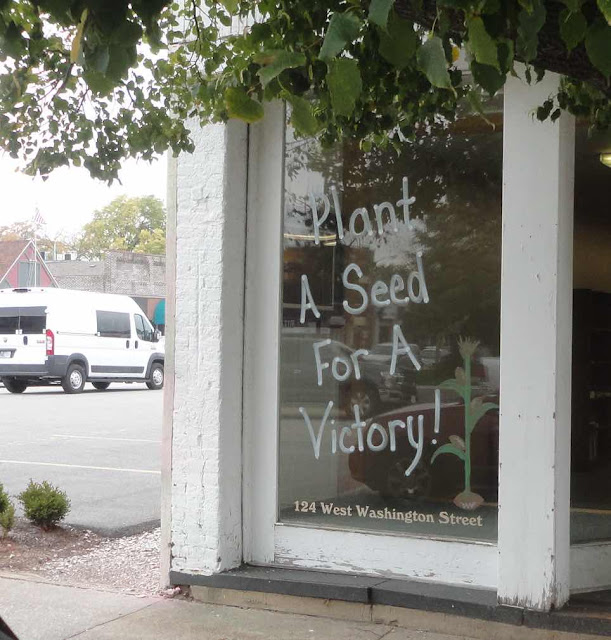 Plant
A Seed
For A
Victory!
124 West Washington Street